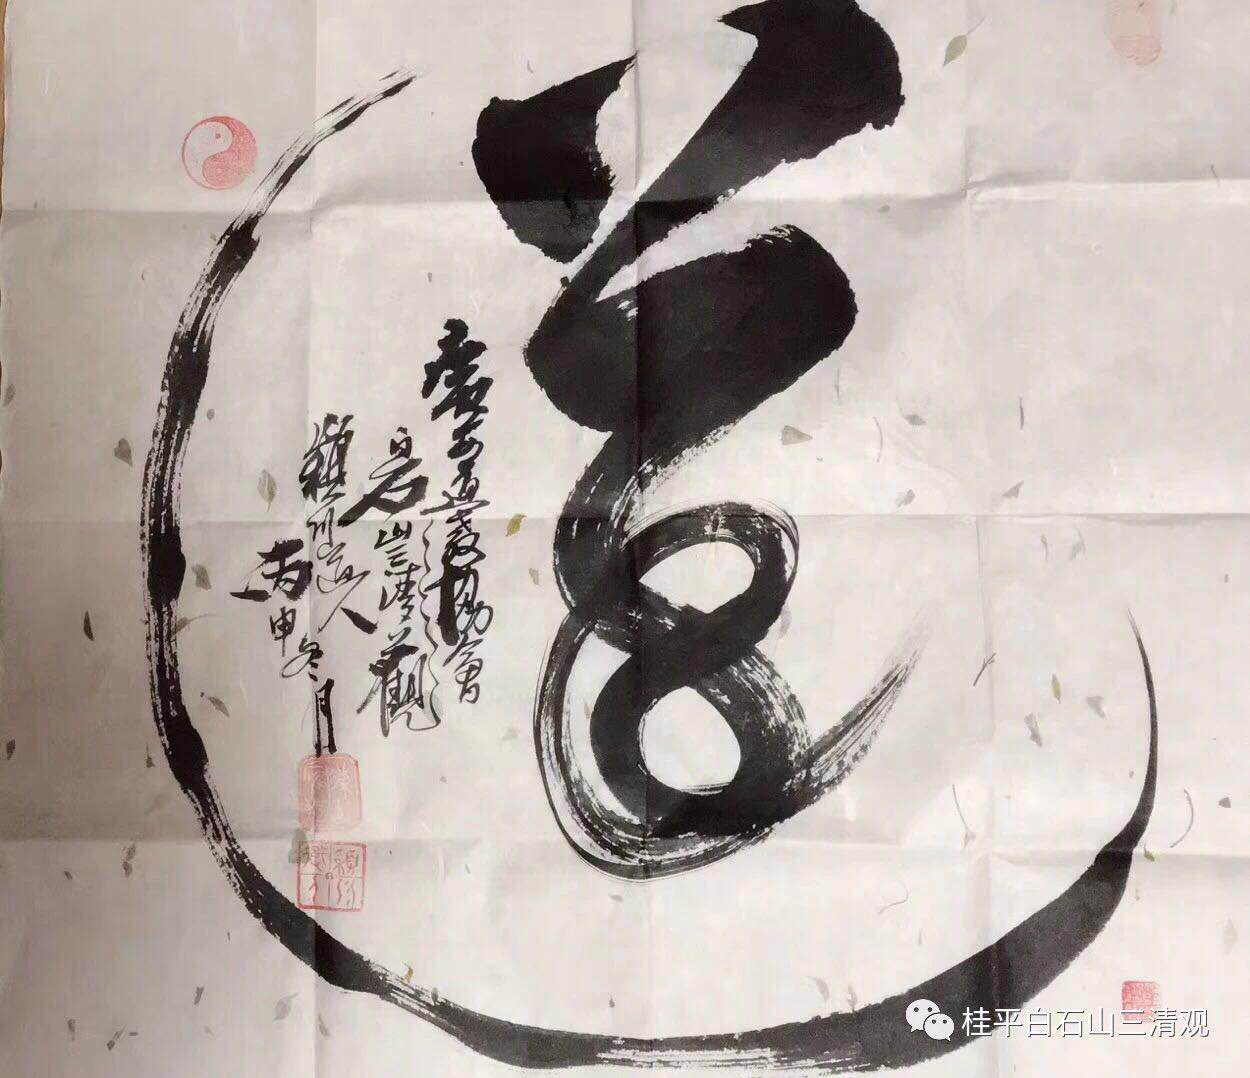 道
廣西道教協會
白石山三清觀
穎川道人
丙申冬月
桂平白石山三清观